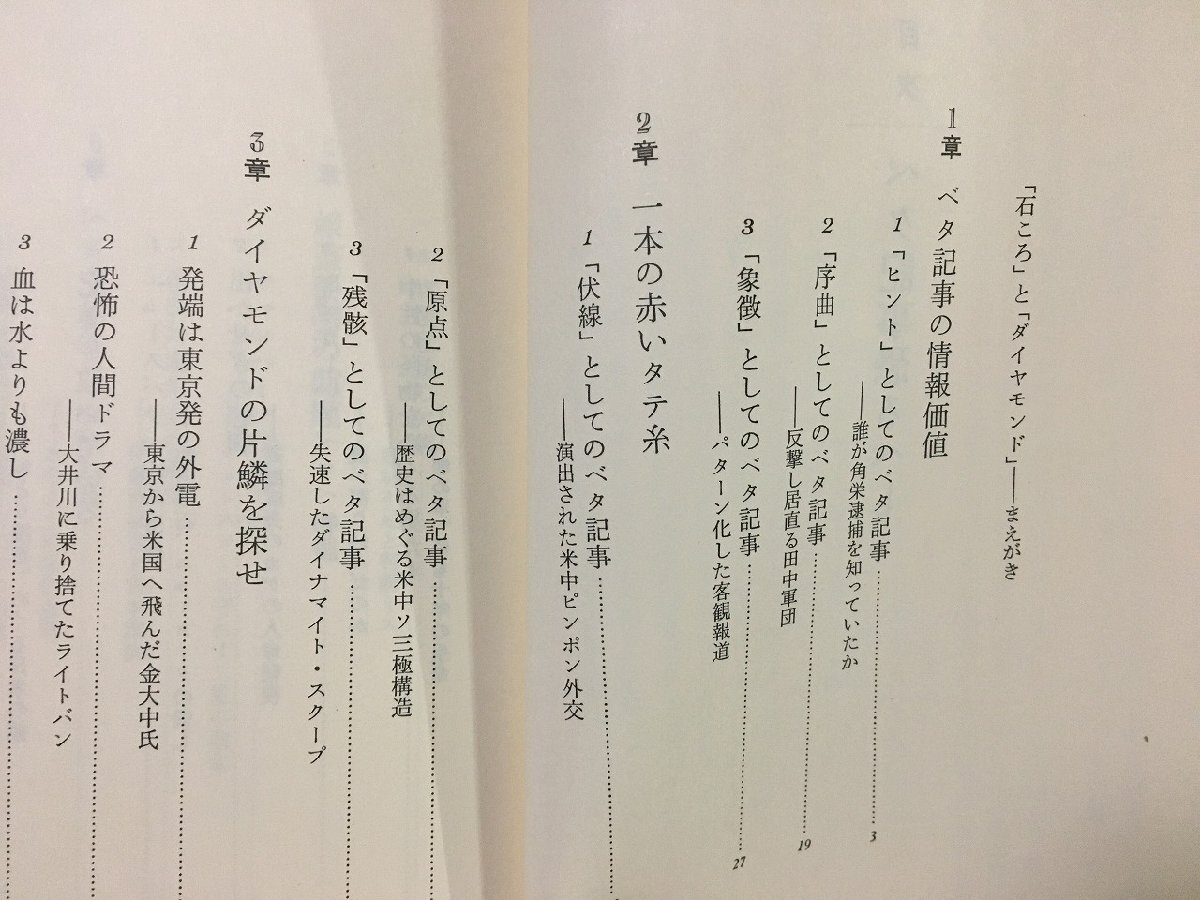 「石ころ」と「ダイヤモンド」——まえがき
1章 ベタ記事の情報価値
1 「ヒント」としてのベタ記事…………3
——誰が角栄逮捕を知っていたか
2 「序曲」としてのベタ記事…………19
——反撃し居直る田中軍団
3 「象徴」としてのベタ記事…………27
——パターン化した客観報道
2章 一本の赤いタテ糸
1 「伏線」としてのベタ記事…………
——演出された米中ピンポン外交
2 「原点」としてのベタ記事…………
——歴史はめぐる米中ソ三極構造
3 「残骸」としてのベタ記事…………
——失速したダイナマイト・スクープ
3章 ダイヤモンドの片鱗を探せ
1 発端は東京発の外電…………
——東京から米国へ飛んだ金大中氏
2 恐怖の人間ドラマ…………
——大井川に乗り捨てたライトバン
3 血は水よりも濃し…………